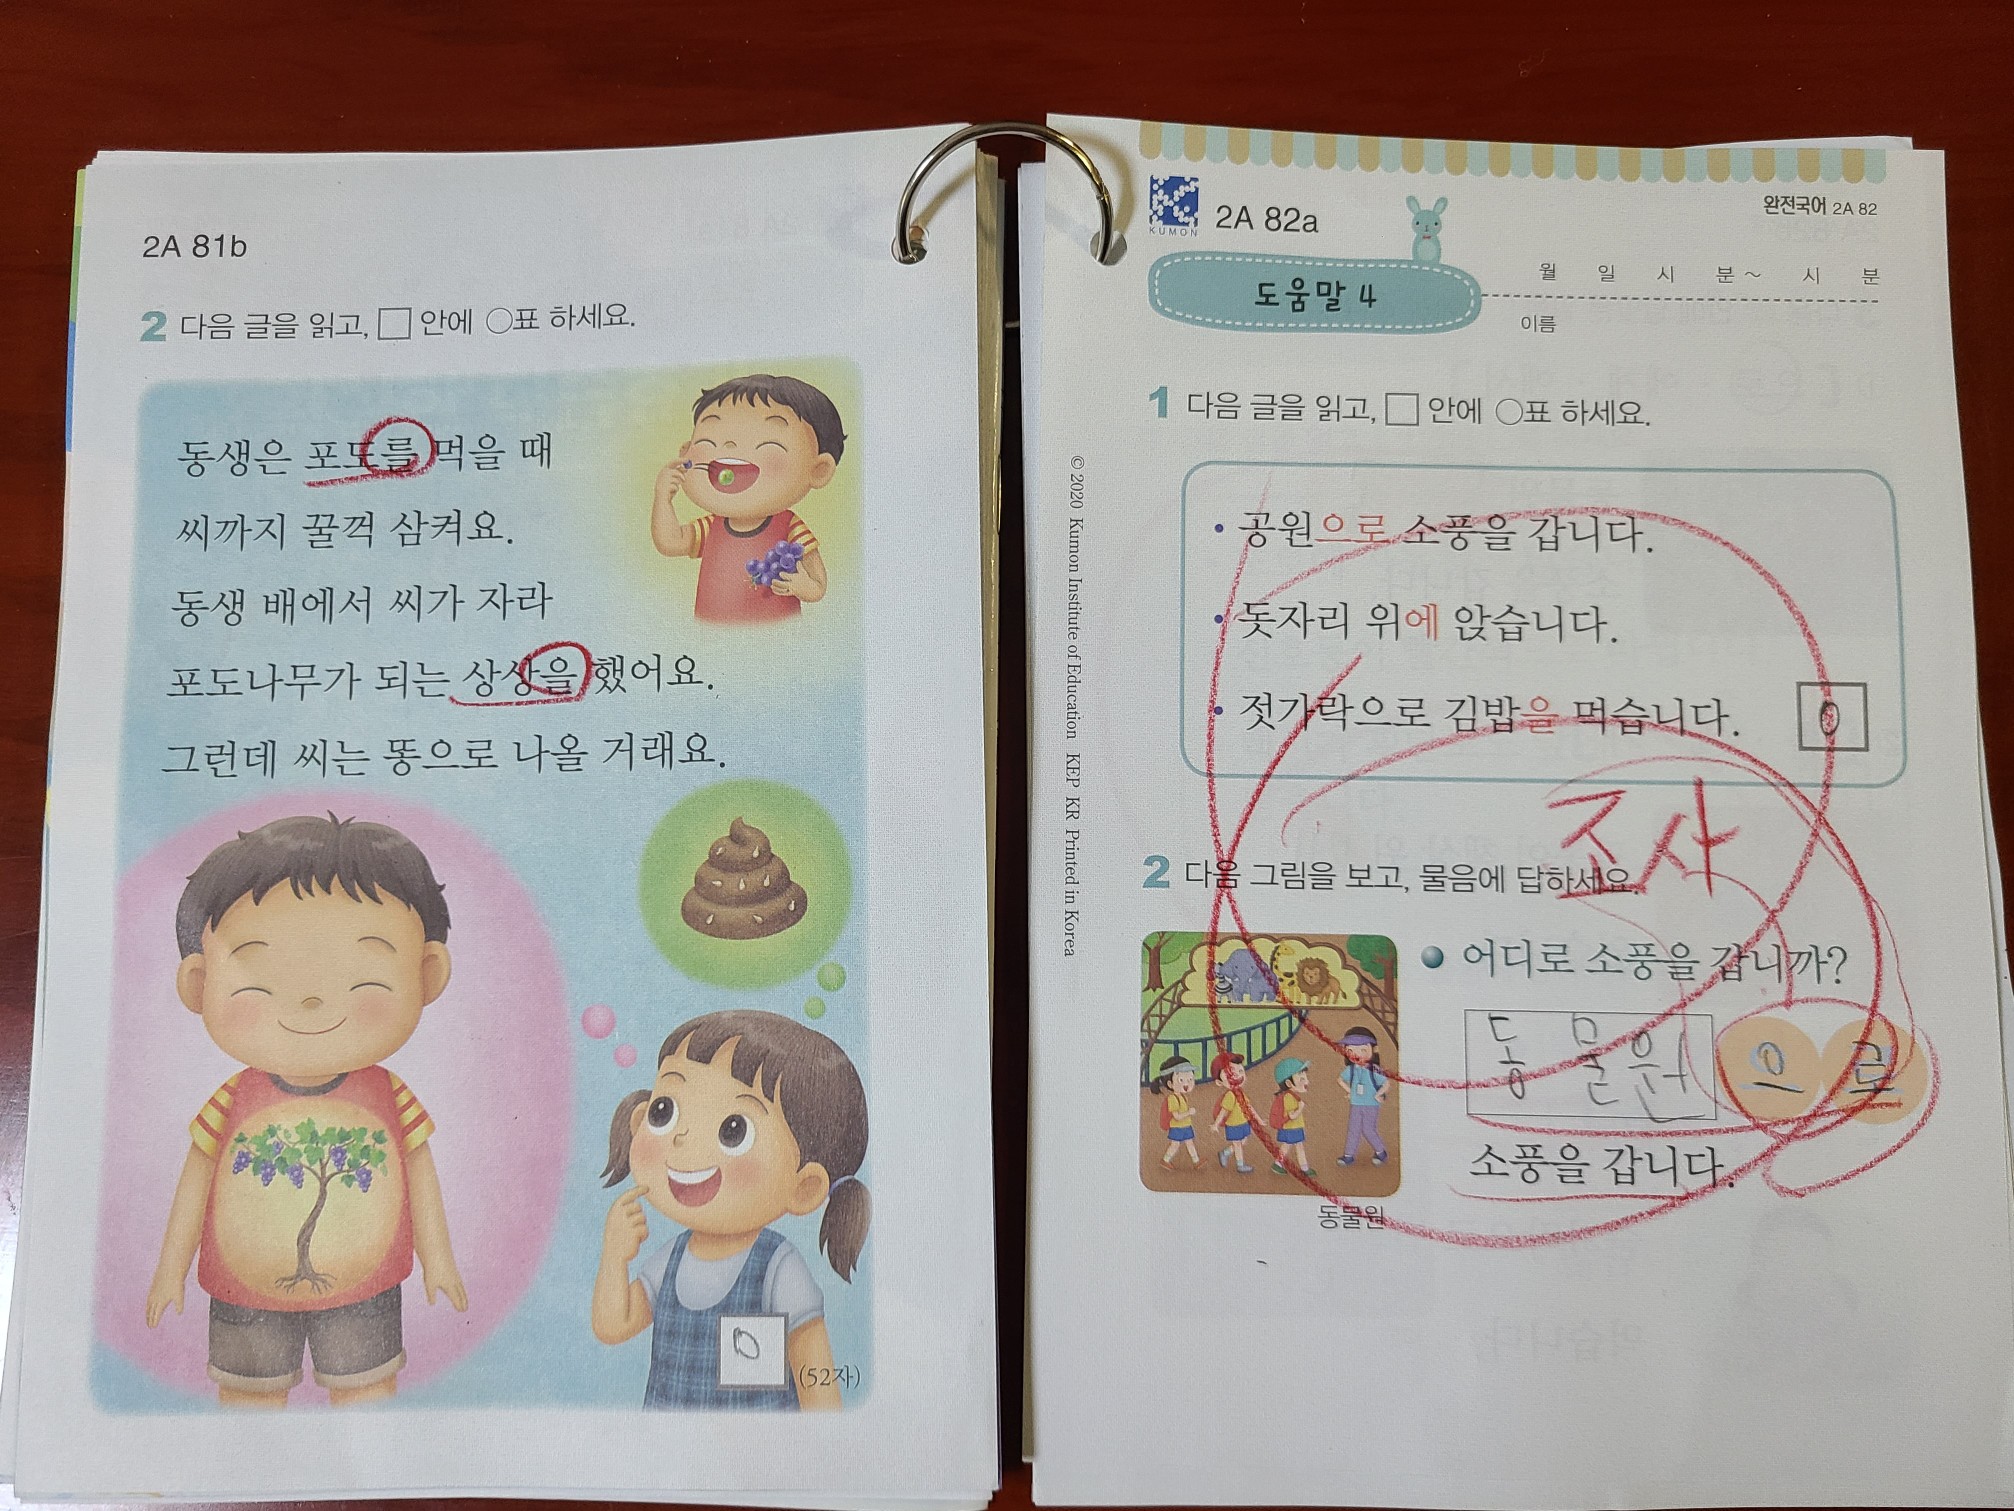 2A 81b
2 다음 글을 읽고, □ 안에 ○표 하세요.
동생은 포도를 먹을 때
씨까지 꿀꺽 삼켜요.
동생 배에서 씨가 자라
포도나무가 되는 상상을 했어요.
그런데 씨는 똥으로 나올 거래요.
0
(52자)
KUMON
2A 82a
완전국어 2A 82
월 일 시 분~ 시 분
도움말 4
이름
1 다음 글을 읽고, □ 안에 ○표 하세요.
• 공원으로 소풍을 갑니다.
• 돗자리 위에 앉습니다.
• 젓가락으로 김밥을 먹습니다.
0
조사
2 다음 그림을 보고, 물음에 답하세요.
어디로 소풍을 갑니까?
동물원 으로
소풍을 갑니다.
동물원
© 2020 Kumon Institute of Education KEP KR Printed in Korea